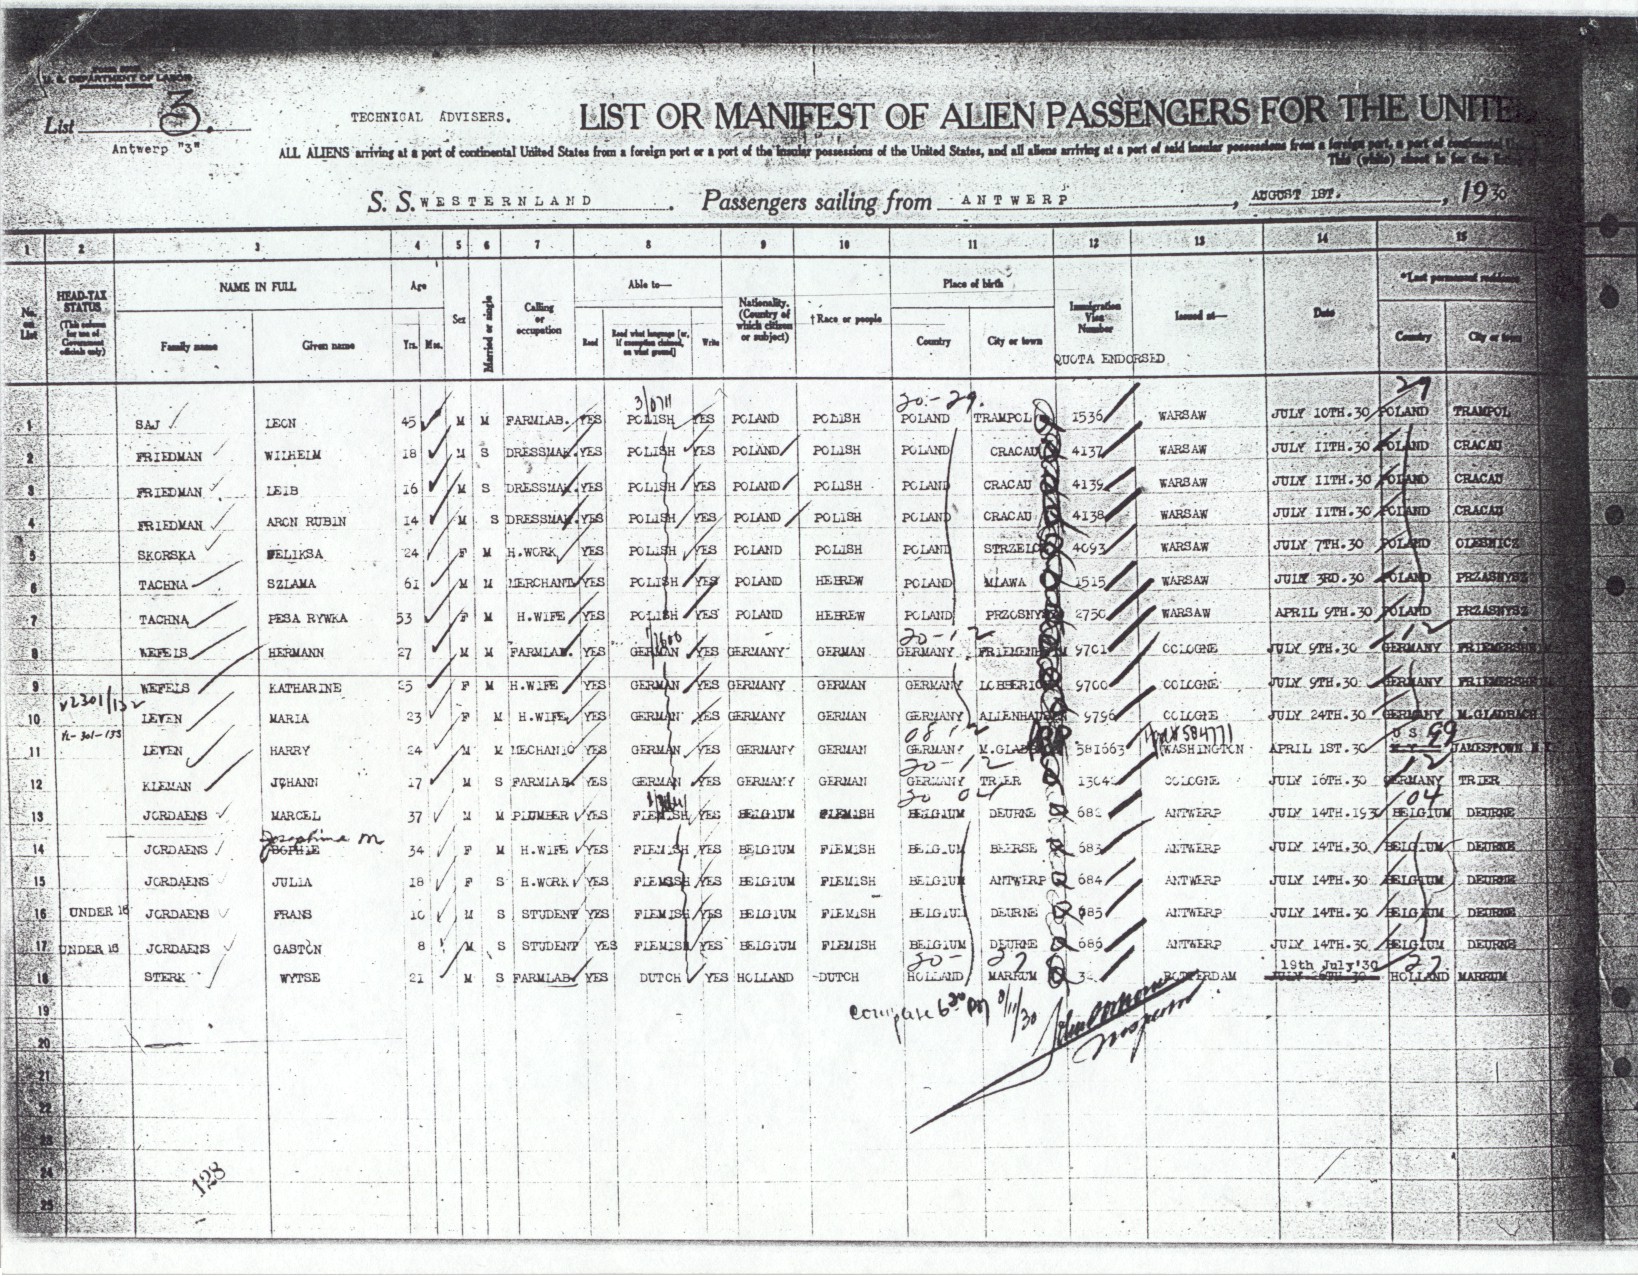 U. S. DEPARTMENT OF LABOR
List 3.
Antwerp "3"
TECHNICAL ADVISERS.
LIST OR MANIFEST OF ALIEN PASSENGERS FOR THE UNITE
ALL ALIENS arriving at a port of continental United States from a foreign port or a port of the insular possessions of the United States, and all aliens arriving at a port of said insular possessions from a foreign port, a port of continental
This (white) sheet is for the
S. S. WESTERNLAND. Passengers sailing from ANTWERP, AUGUST 1ST., 1930
1 2 3 4 5 6 7 8 9 10 11 12 13 14 15
No. on List
HEAD-TAX STATUS (This column for use of Government officials only)
NAME IN FULL
Family name
Given name
Age
Yrs. Mos.
Sex
Married or single
Calling or occupation
Able to—
Read
Read what language [or, if exemption claimed, on what ground]
Write
Nationality. (Country of which citizen or subject)
†Race or people
Place of birth
Country
City or town
Immigration Visa Number
QUOTA ENDORSED
Issued at—
Date
*Last permanent residence
Country
City or town
30-29. 29
1 SAJ LEON 45 M M FARMLAB. YES POLISH YES POLAND POLISH POLAND TRAMPOL 1536 WARSAW JULY 10TH.30 POLAND TRAMPOL
2 FRIEDMAN WILHELM 18 M S DRESSMAK. YES POLISH YES POLAND POLISH POLAND CRACAU 4137 WARSAW JULY 11TH.30 POLAND CRACAU
3 FRIEDMAN LEIB 16 M S DRESSMAK. YES POLISH YES POLAND POLISH POLAND CRACAU 4139 WARSAW JULY 11TH.30 POLAND CRACAU
4 FRIEDMAN ARON RUBIN 14 M S DRESSMAK. YES POLISH YES POLAND POLISH POLAND CRACAU 4138 WARSAW JULY 11TH.30 POLAND CRACAU
5 SKORSKA FELIKSA 24 F M H.WORK YES POLISH YES POLAND POLISH POLAND STRZELC 4093 WARSAW JULY 7TH.30 POLAND OLESNICZ
6 TACHNA SZLAMA 61 M M MERCHANT YES POLISH YES POLAND HEBREW POLAND MLAWA 1515 WARSAW JULY 3RD.30 POLAND PRZASNYSZ
7 TACHNA PESA RYWKA 53 F M H.WIFE YES POLISH YES POLAND HEBREW POLAND PRZOSNY 2750 WARSAW APRIL 9TH.30 POLAND PRZASNYSZ
30-12 12
8 WEFELS HERMANN 27 M M FARMLAB. YES GERMAN YES GERMANY GERMAN GERMANY 9701 COLOGNE JULY 9TH.30 GERMANY FRIEMERSHEIM
9 WEFELS KATHARINE 25 F M H.WIFE YES GERMAN YES GERMANY GERMAN GERMANY LOBBERIC 9700 COLOGNE JULY 9TH.30 GERMANY FRIEMERSHEIM
v2301/132
10 LEVEN MARIA 23 F M H.WIFE YES GERMAN YES GERMANY GERMAN GERMANY ALLENHAUSEN 9796 COLOGNE JULY 24TH.30 GERMANY M.GLADBACH
08-12 U S 99
11 LEVEN HARRY 24 M M MECHANIC YES GERMAN YES GERMANY GERMAN GERMANY M.GLADB 581663 WASHINGTON APRIL 1ST.30 JAMESTOWN N.Y.
30-12 12
12 KLEMAN JOHANN 17 M S FARMLAB. YES GERMAN YES GERMANY GERMAN GERMANY TRIER 1364 COLOGNE JULY 16TH.30 GERMANY TRIER
30 04 04
13 JORDAENS MARCEL 37 M M PLUMBER YES FLEMISH YES BELGIUM FLEMISH BELGIUM DEURNE 682 ANTWERP JULY 14TH.193 BELGIUM DEURNE
Josephine M
14 JORDAENS SOPHIE 34 F M H.WIFE YES FLEMISH YES BELGIUM FLEMISH BELGIUM BEERSE 683 ANTWERP JULY 14TH.30 BELGIUM DEURNE
15 JORDAENS JULIA 18 F S H.WORK YES FLEMISH YES BELGIUM FLEMISH BELGIUM ANTWERP 684 ANTWERP JULY 14TH.30 BELGIUM DEURNE
16 UNDER 16 JORDAENS FRANS 10 M S STUDENT YES FLEMISH YES BELGIUM FLEMISH BELGIUM DEURNE 685 ANTWERP JULY 14TH.30 BELGIUM DEURNE
17 UNDER 16 JORDAENS GASTON 8 M S STUDENT YES FLEMISH YES BELGIUM FLEMISH BELGIUM DEURNE 686 ANTWERP JULY 14TH.30 BELGIUM DEURNE
30- 27 19th July'30 27
18 STERK WYTSE 21 M S FARMLAB. YES DUTCH YES HOLLAND DUTCH HOLLAND MARRUM ROTTERDAM HOLLAND MARRUM
19
20
21
22
23
24
25
128